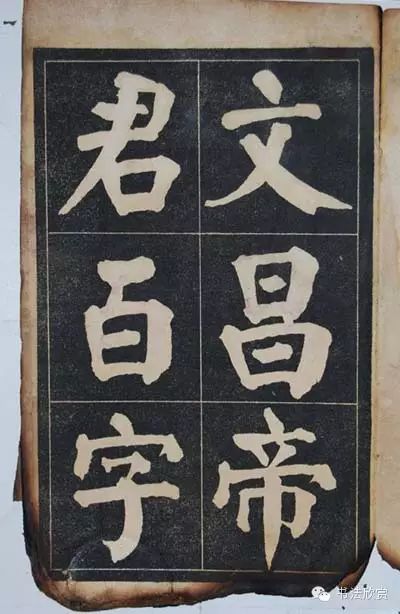 文昌帝
君百字
书法欣赏